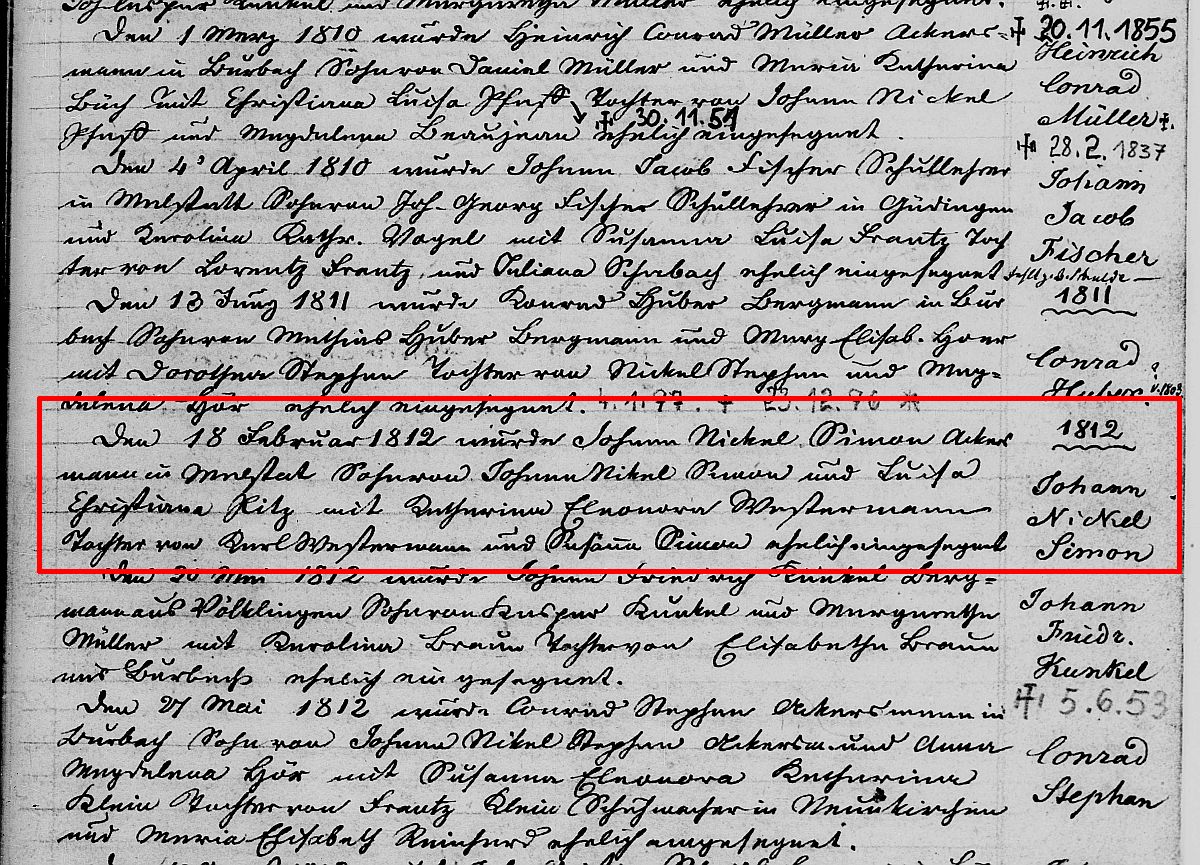 Joh Caspar Kunkel und Margaretha Müller ehelich eingesegnet.
Den 1 Merz 1810 wurde Heinrich Conrad Müller Ackers=
mann in Burbach Sohn von Daniel Müller und Maria Katharina
Büch mit Christiana Luisa Pfaff Tochter von Johann Nickel
✝ 30.11.51
Pfaff und Magdalena Beaujean ehelich eingesegnet.
✝ 20.11.1855
Heinrich
Conrad
Müller ✝.
Den 4' April 1810 wurde Johann Jacob Fischer Schullehrer
in Malstatt Sohn von Joh. Georg Fischer Schullehrer in Güdingen
und Karolina Kathr. Vogel mit Susanna Luisa Frantz Toch
ter von Lorentz Frantz und Juliana Schabach ehelich eingesegnet
✝ 28.2.1837
Johann
Jacob
Fischer
Den 13 Juny 1811 wurde Konrad Huber Bergmann in Bur
bach Sohn von Mathias Huber Bergmann und Marg Elisab. Hoer
mit Dorothea Stephan Tochter von Nickel Stephan und Mag=
dalena Hör ehelich eingesegnet. 4.1.97. + 23.12.76 *
1811
Conrad
Huber
Den 18 Februar 1812 wurde Johann Nickel Simon Ackers
mann in Malstat Sohn von Johann Nikel Simon und Luisa
Christiana Ritz mit Katharina Eleonora Westermann
Tochter von Karl Westermann und Susana Simon ehelich eingesegnet
1812
Johann
Nickel
Simon
Den 20 Mai 1812 wurde Johann Friedrich Kunkel Berg=
mann aus Völklingen Sohn von Kaspar Kunkel und Margaretha
Müller mit Karolina Braun Tochter von Elisabetha Braun
aus Burbach ehelich eingesegnet.
Johann
Friedr.
Kunkel
Den 27 Mai 1812 wurde Conrad Stephan Ackersmann in
Burbach Sohn von Johann Nikel Stephan Ackersm. und Anna
Magdalena Hör mit Susanna Eleonora Katharina
Klein Tochter von Frantz Klein Schuhmacher in Neunkirchen
und Maria Elisabeth Reinhard ehelich eingesegnet.
✝ 5.6.53
Conrad
Stephan